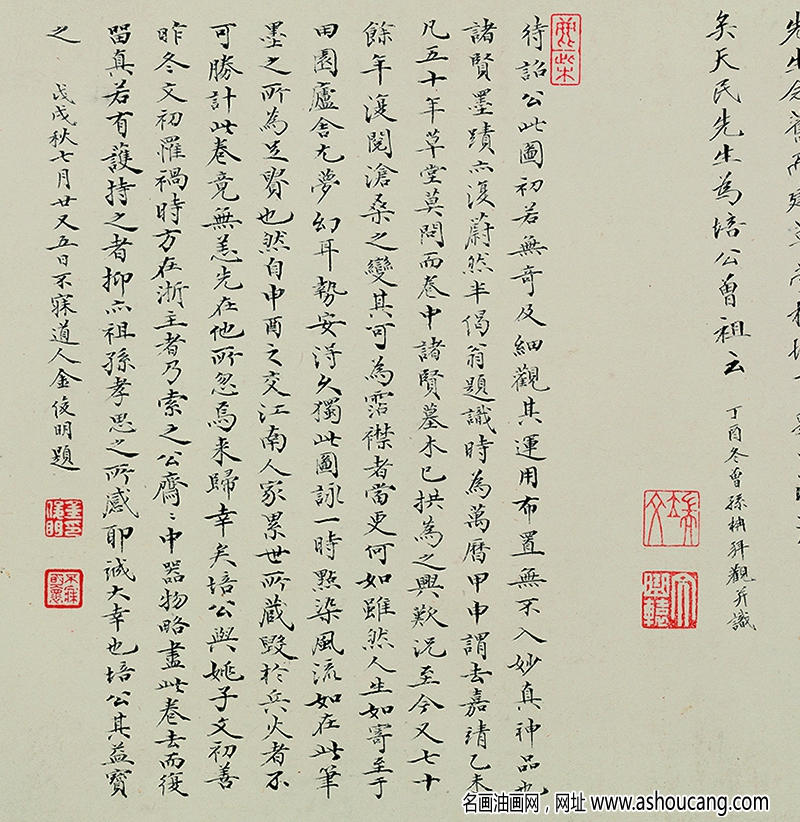 先生
矣天民先生為培公曾祖云
丁酉冬曾孫枏拜觀并識
待詔公此圖初若無奇及細觀其運用布置無不入妙真神品也
諸賢墨蹟亦復蔚然半偈翁題識時為萬曆甲申謂去嘉靖乙未
凡五十年草堂莫問而卷中諸賢墓木已拱為之興歎況至今又七十
餘年復閱滄桑之變其可為霑襟者當更何如雖然人生如寄至于
田園廬舍尤夢幻耳勢安得久獨此圖詠一時點染風流如在此筆
墨之所為足貴也然自申酉之交江南人家累世所蔵毀於兵火者不
可勝計此卷竟無恙先在他所忽焉来歸幸矣培公與姚子文初善
昨冬文初罹禍時方在浙主者乃索之公齋齋中器物略盡此卷去而復
留真若有護持之者抑亦祖孫孝思之所感耶誠大幸也培公其益寶
之
戊戌秋七月廿又五日不寐道人金俊明題
名画油画网，网址 www.ashoucang.com